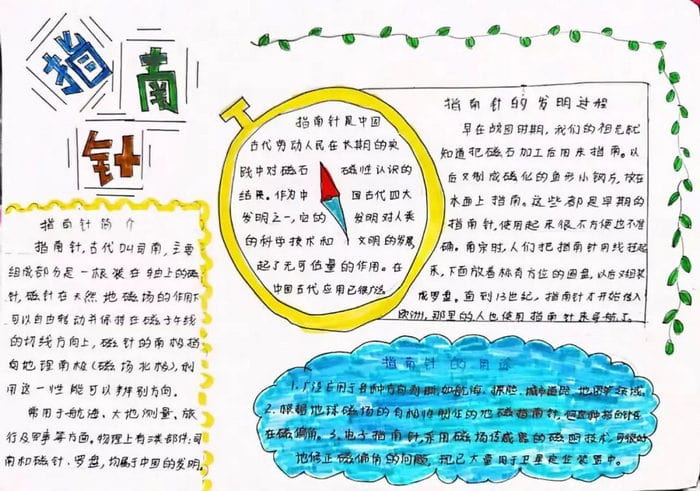 指南针
指南针简介
指南针,古代叫司南,主要
组成部分是一根装在轴上的磁
针,磁针在天然地磁场的作用下
可以自由转动并保持在磁子午线
的切线方向上,磁针的南极指
向地理南极(磁场北极),利
用这一性能可以辨别方向。
常用于航海、大地测量、旅
行及军事等方面。物理上有
南和磁针、罗盘,均属于中国的发明。
指南针是中国
古代劳动人民在长期的实
践中对磁石 磁性认识的
结果。作为中 国古代四大
发明之一,它的 发明对人类
的科学技术和 文明的发展,
起了无可估量的作用。在
中国古代应用已很广泛
指南针的发明过程
早在战国时期,我们的祖先就
知道把磁石加工后用来指南。以
后又制成磁化的鱼形小钢片,放在
水面上指南。这些都是早期的
指南针,使用起来很不方便也不准
确。南宋时,人们把指南针用线拴起
来,下面放着标有方位的圆盘,以后又组装
成罗盘。直到13世纪,指南针才开始传入
欧洲,那里的人也使用指南针来导航了。
指南针的用途
1.广泛应用于各种方向判断,如航海、探险、城市道路、地图等领域。
2.根据地球磁场的有极性制作的地磁指南针,但这种指的针存
在磁偏角。3.电子指南针,采用磁场传感器的磁阻技术,可很好
地修正磁偏角的问题,现已大量用于卫星定位装置中。